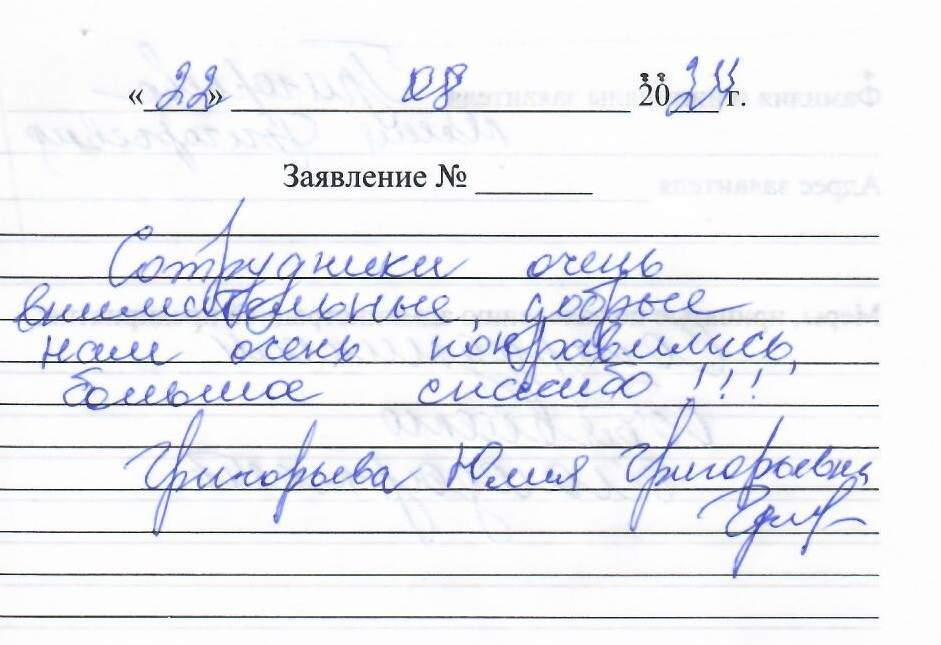 «22» 08 2024 г.
Заявление №
Сотрудники очень
внимательные, добрые
нам очень понравились,
большое спасибо!!!
Григорьева Юлия Григорьевна